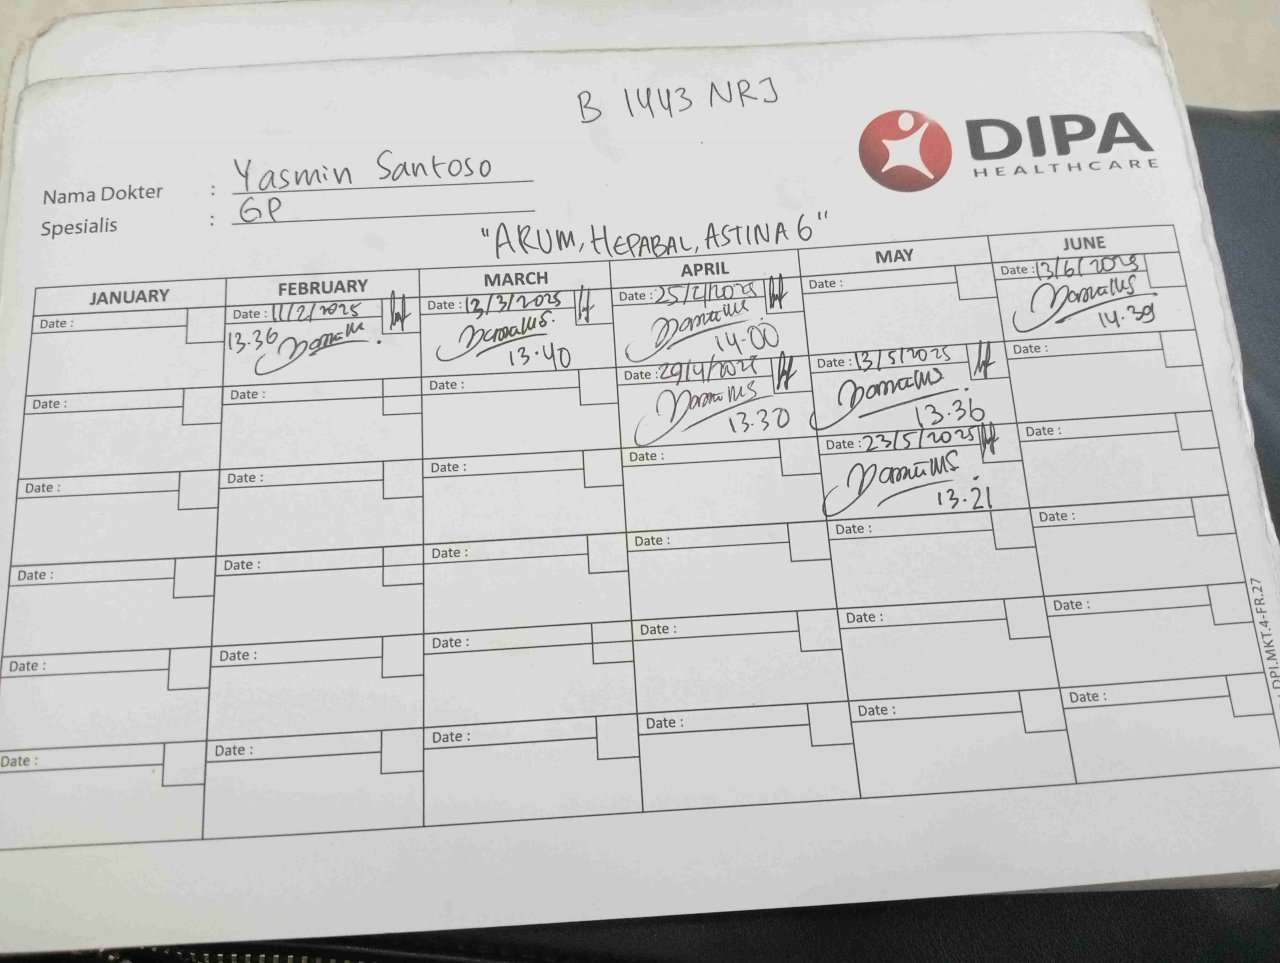 B 1443 NRJ
DIPA
HEALTHCARE
Nama Dokter : Yasmin Santoso
Spesialis : GP
"ARUM, HEPABAL, ASTINA 6"
JANUARY FEBRUARY MARCH APRIL MAY JUNE
Date : Date : 11/2/2025 Date : 13/3/2025 Date : 25/4/2025 Date : Date : 13/6/2025
13.36 13.40 14.00 14.39
Date : Date : Date : Date : 29/4/2025 Date : 13/5/2025 Date :
13.30 13.36
Date : Date : Date : Date : Date : 23/5/2025 Date :
13.21
Date : Date : Date : Date : Date : Date :
Date : Date : Date : Date : Date : Date :
Date : Date : Date : Date : Date : Date :
DPI.MKT.4-FR.27